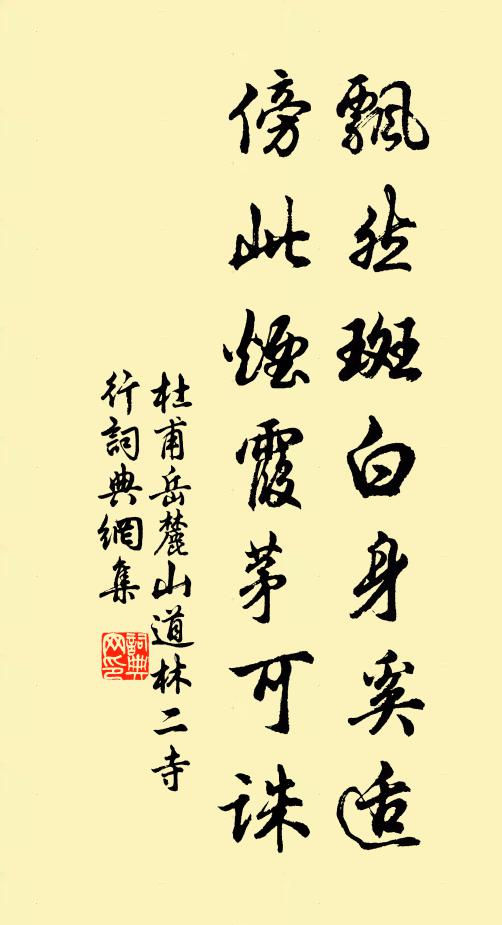 飄然斑白身奚適
傍此煙霞茅可誅
杜甫岳麓山道林二寺
行詞典網集
詞典網印